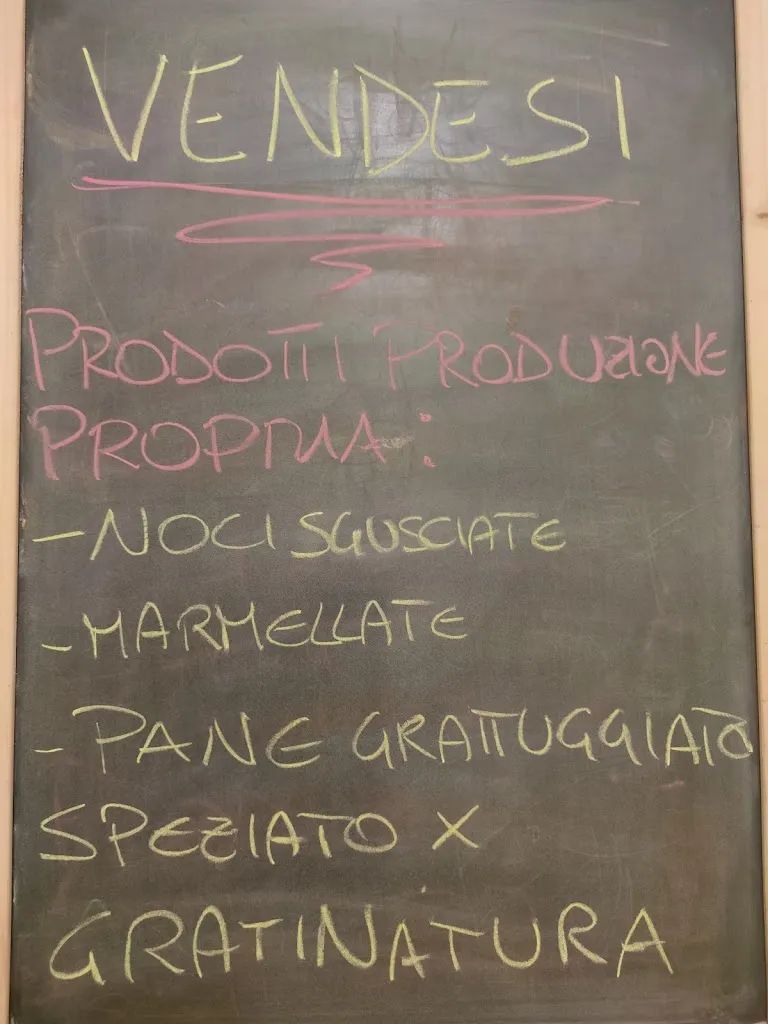 VENDESI
PRODOTTI PRODUZIONE
PROPRIA:
- NOCI SGUSCIATE
- MARMELLATE
- PANE GRATTUGGIATO
SPEZIATO X
GRATINATURA